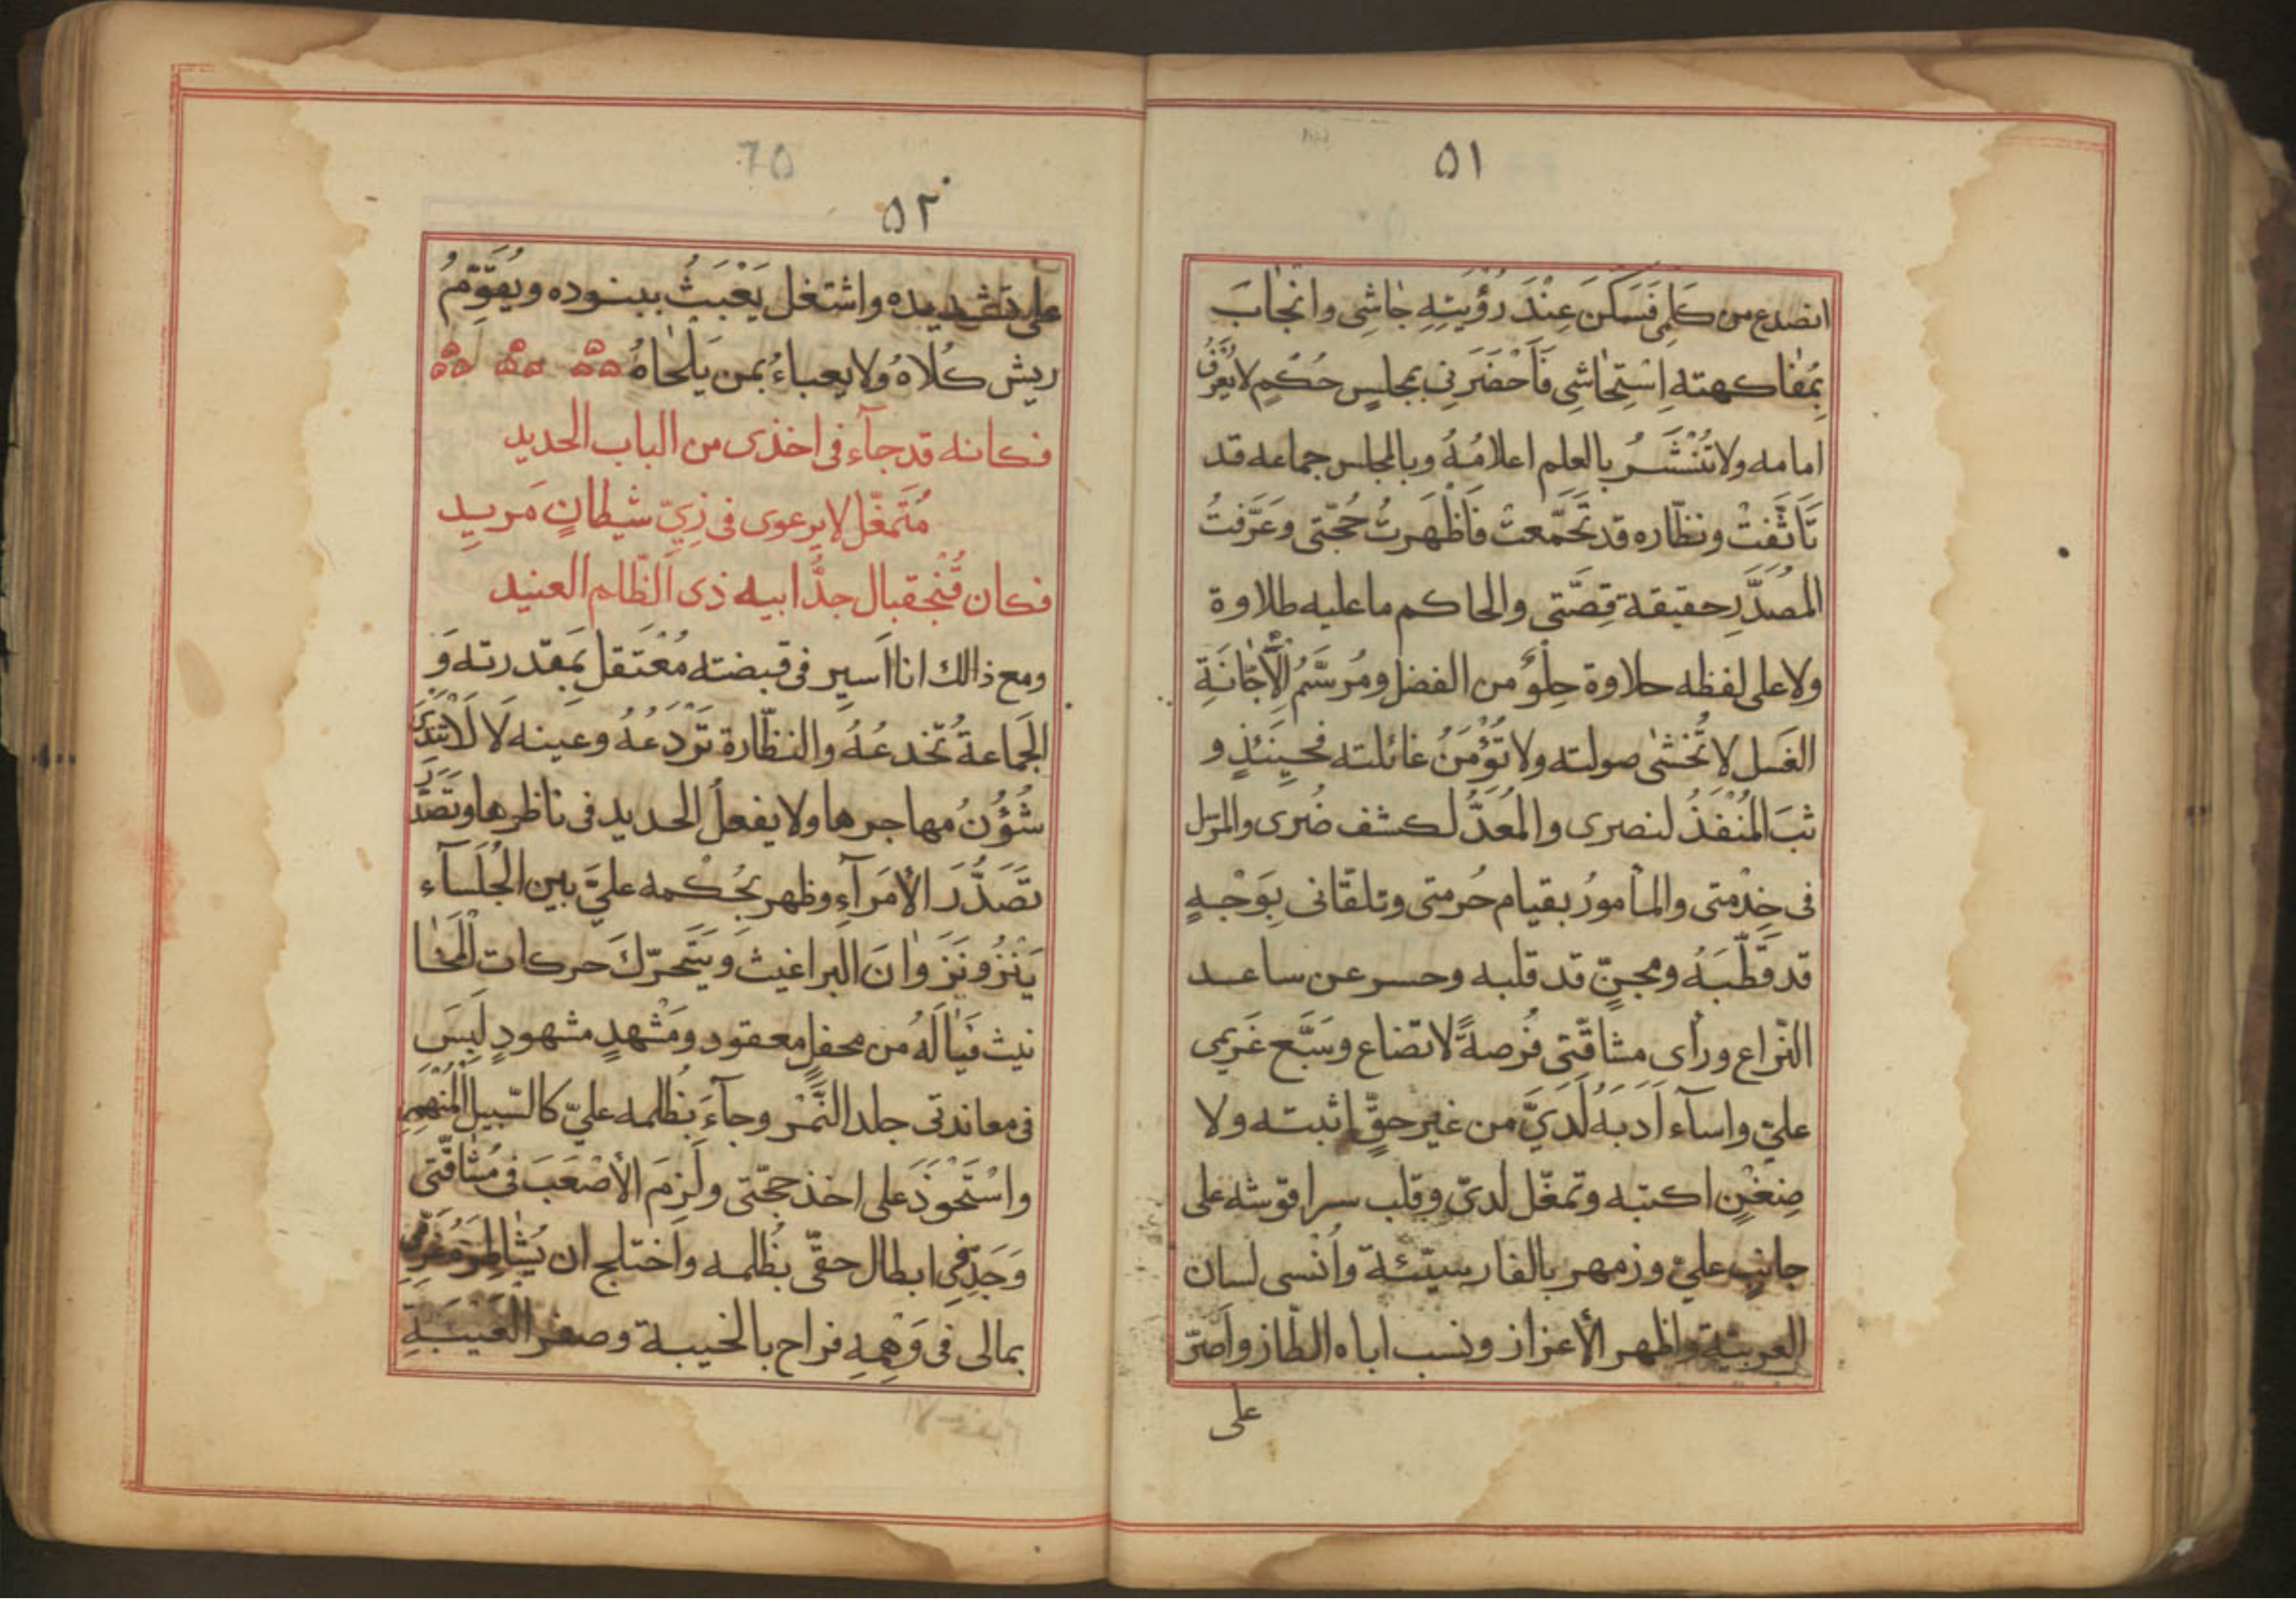 ٥١
انصدع من كَلِمِي فَسَكَنَ عِنْدَ رُؤْيَتِهِ جَاشِي وانْجَابَ
بِمُفاكهته اِسْتِحَاشِي فَأَحْضَرَنِي بمجلسٍ حُكمٍ لا يُعْرَفُ
امامه ولا تُنْشَرُ بالعلم اعلامُهُ وبالمجلس جماعه قد
تَأَثَّفَتْ ونظّاره قد تَجَمّعتْ فَأَظْهَرتُ حُجّتى وعَرَّفتُ
المُصدَّرِ حقيقة قِصَّتى والحاكم ما عليه طلاوة
ولا على لفظه حلاوة خِلْوٌ من الفضل ومُرسَّمُ الأَجّانَةِ
الغَسل لا تُخشىٰ صولته ولا تُؤْمَنُ غائلته فحينئذٍ و
ثبَ المُنْفَذُ لنصرى والمُعَدُّ لكشف ضُرى والمرسل
فى خِدْمتى والمأمورُ بقيام حُرمتى وتلقّانى بِوَجْهٍ
قد قَطَّبَهُ ومجنٍّ قد قلبه وحسر عن ساعد
النّزاع ورأى مشاقّتى فُرصةً لا تضاع وسَبَّع غَريمى
علىّ واسآء اَدَبَهُ لَدَيَّ من غير حقٍّ اثبته ولا
ضِغْنٍ اكتبه وتمغّل لدىّ وقلب سراقوشه على
جانبٍ علىّ وزمهر بالفارسيّئة واُنْسى لسان
العربيّة واظهر الأعزاز ونسب اباه الطّاز واَصرّ
على
٥٢
65
على تشديده واشتغل يَعْبَثُ ببنوده ويُقوِّمُ
ريش كُلاهُ ولا يعباءُ بمن يَلحاهُ
فكانه قد جآء فى اخذى من الباب الحديد
مُتَمغّل لا يرعوى فى زِيّ شيطانٍ مَريدِ
فكان قُنْجقبال جدُّ ابيه ذى الظّلم العنيد
ومع ذالك انا اَسير فى قبضته مُعْتَقل بمقدرته وَ
الجَماعةُ تُخدعُهُ والنظّارة تَرْدَعُهُ وعينه لَا تَنْدَى
شُؤُنُ مهاجرها ولا يفعلُ الحديد فى ناظرها وتَصدَّ
تَصَدُّرَ الأُمَرآءِ وظهر بحُكمه علىَّ بين الجُلَسآء
يَنْزُو نَزَوانَ البراغيث ويَتَحرّكَ حركات المَخا
نيث فَيَالَهُ من محفلٍ معقود ومَشْهدٍ مشهودٍ لَبِسَ
فى معاندتى جلد النَّمْر وجآءَ بُظلمه علىّ كالسّبيل المُنْهمِرِ
واسْتَحْوَذَ على اخذ حجّتى ولَزِمَ الأصْعَبَ فى مُشاقّتى
وَجَدّ فى ابطال حقّى بظُلمه واختلج ان يُشاطِرَ غَريمى
بمالى فى وَهْمِهِ فراح بالخيبة وصفر العَيْبَةِ